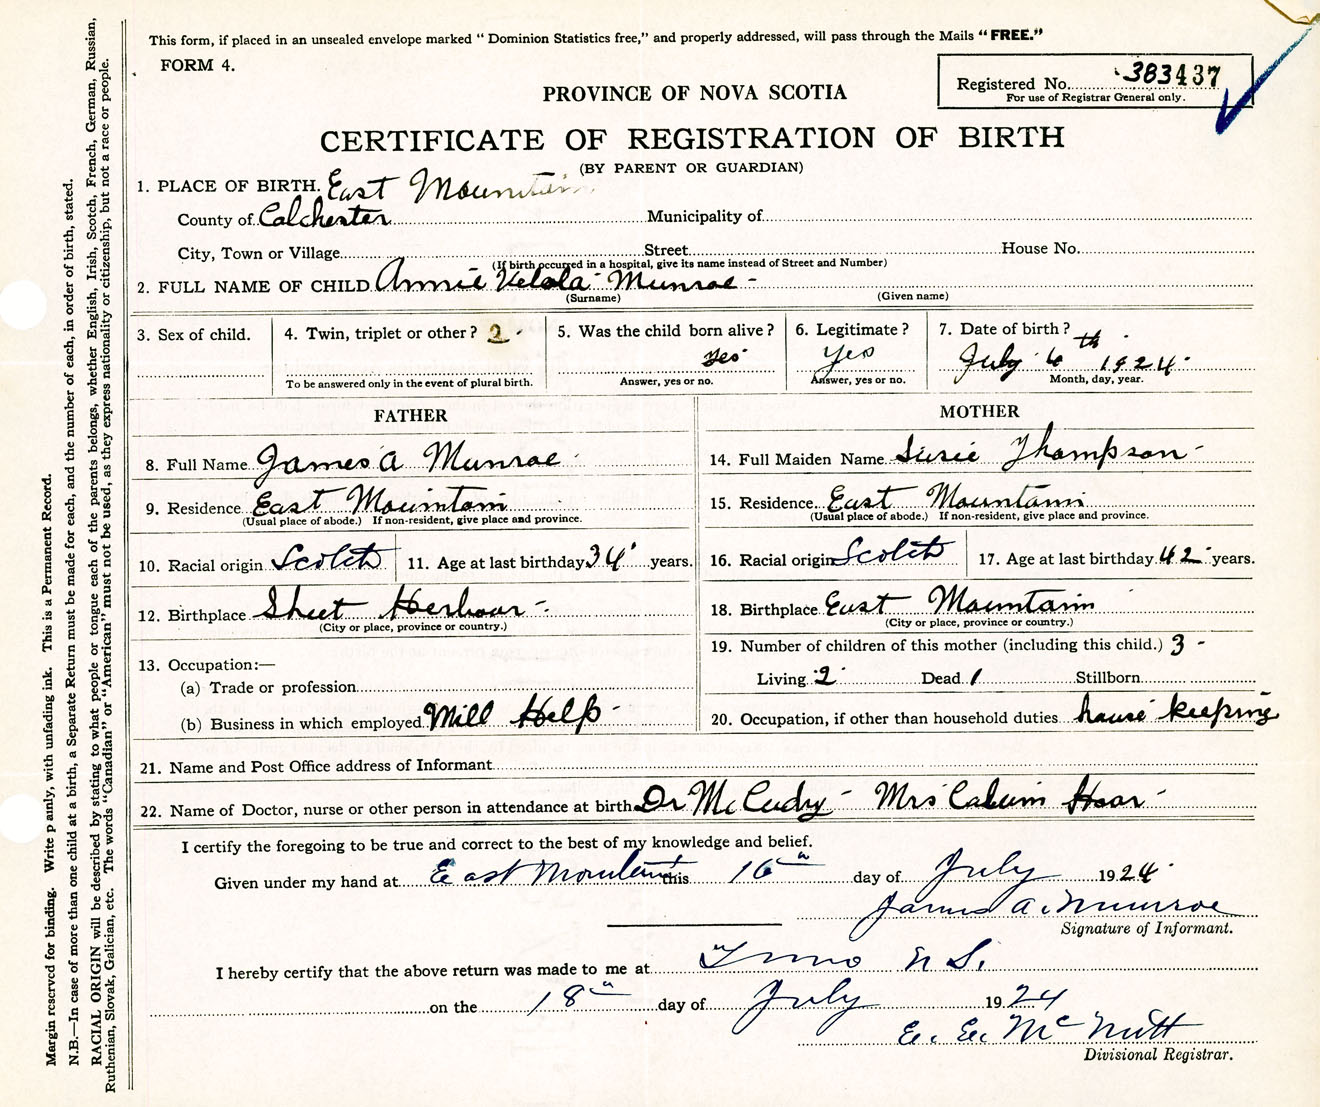 This form, if placed in an unsealed envelope marked " Dominion Statistics free," and properly addressed, will pass through the Mails "FREE."
FORM 4.
Registered No. 383437
For use of Registrar General only.
PROVINCE OF NOVA SCOTIA
CERTIFICATE OF REGISTRATION OF BIRTH
(BY PARENT OR GUARDIAN)
1. PLACE OF BIRTH. East Mountain
County of Colchester Municipality of
City, Town or Village Street House No.
(If birth occurred in a hospital, give its name instead of Street and Number)
2. FULL NAME OF CHILD Annie Munroe -
(Surname) (Given name)
3. Sex of child. 4. Twin, triplet or other? 2 - 5. Was the child born alive? 6. Legitimate? 7. Date of birth?
yes yes July 6th 1924
To be answered only in the event of plural birth. Answer, yes or no. Answer, yes or no. Month, day, year.
FATHER
8. Full Name James A Munroe
9. Residence East Mountain
(Usual place of abode.) If non-resident, give place and province.
10. Racial origin Scotch 11. Age at last birthday 34 years.
12. Birthplace Sheet Harbour -
(City or place, province or country.)
13. Occupation:—
(a) Trade or profession
(b) Business in which employed Mill Help -
MOTHER
14. Full Maiden Name Susie Thompson -
15. Residence East Mountain
(Usual place of abode.) If non-resident, give place and province.
16. Racial origin Scotch 17. Age at last birthday 42 years.
18. Birthplace East Mountain
(City or place, province or country.)
19. Number of children of this mother (including this child.) 3 -
Living 2 Dead 1 Stillborn
20. Occupation, if other than household duties house keeping
21. Name and Post Office address of Informant
22. Name of Doctor, nurse or other person in attendance at birth Dr McCurdy - Mrs Calvin Hoar -
I certify the foregoing to be true and correct to the best of my knowledge and belief.
Given under my hand at East Mountain this 16th day of July 1924
James A. Munroe
Signature of Informant.
I hereby certify that the above return was made to me at Truro N.S.
on the 18th day of July 1924
E. E. McNutt
Divisional Registrar.
Margin reserved for binding. Write plainly, with unfading ink. This is a Permanent Record.
N.B.—In case of more than one child at a birth, a Separate Return must be made for each, and the number of each, in order of birth, stated.
RACIAL ORIGIN will be described by stating to what people or tongue each of the parents belongs, whether English, Irish, Scotch, French, German, Russian,
Ruthenian, Slovak, Galician, etc. The words "Canadian" or "American" must not be used, as they express nationality or citizenship, but not a race or people.